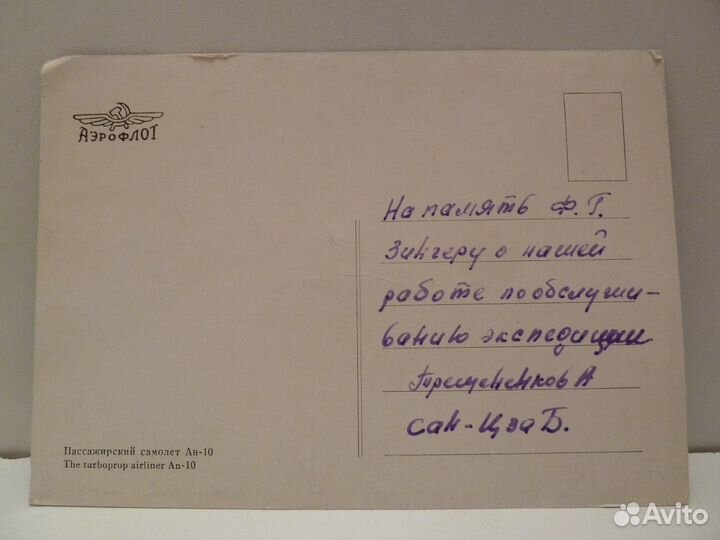 АЭРОФЛОТ
На память Ф. Г.
Зингеру о нашей
работе по обслужи-
ванию экспедиции
Трещененков А
Сан-Цза Б.
Пассажирский самолет Ан-10
The turboprop airliner An-10
Avito